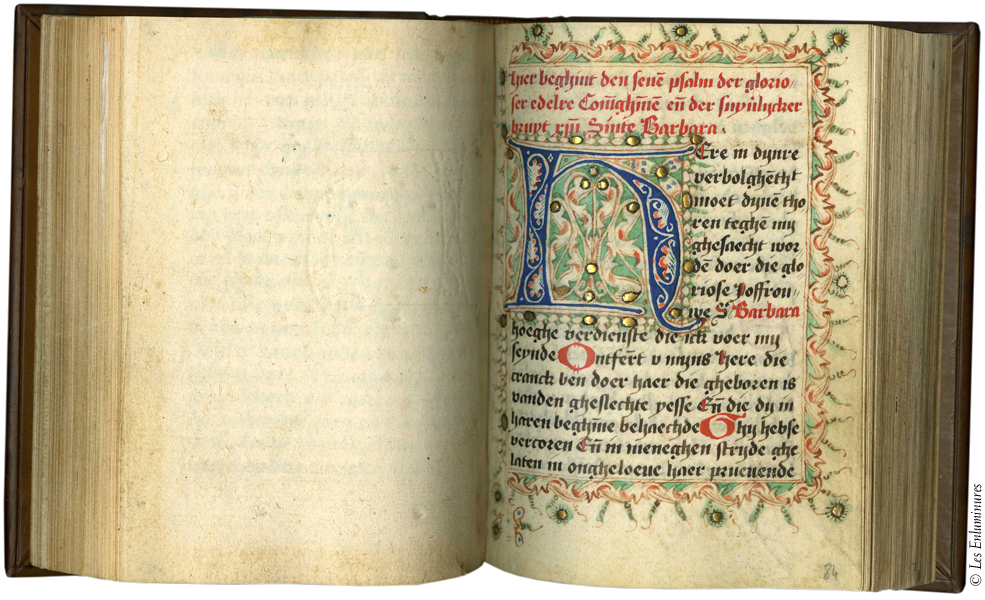 hier beghint den seuē psalm der glorio
ser edelre Coniḡhīne eñ der suyuʼlycker
bruyt xpī Sinte Barbara.
HEre in dynre
verbolghētht
moet dynē tho
ren teghē my
ghesaecht wor
dē doer die glo
riose Joffrou
we Sʳ Barbara
hoeghe verdienste die ick voer my
seynde Ontfert v myns here die
cranck ben doer haer die gheboren is
vanden gheslechte yesse Eñ die dy in
haren beghīne behaechde Ghy hebse
vercoren Eñ in meneghen stryde ghe
laten in ongheloeue haer prueuende
84
© Les Enluminures